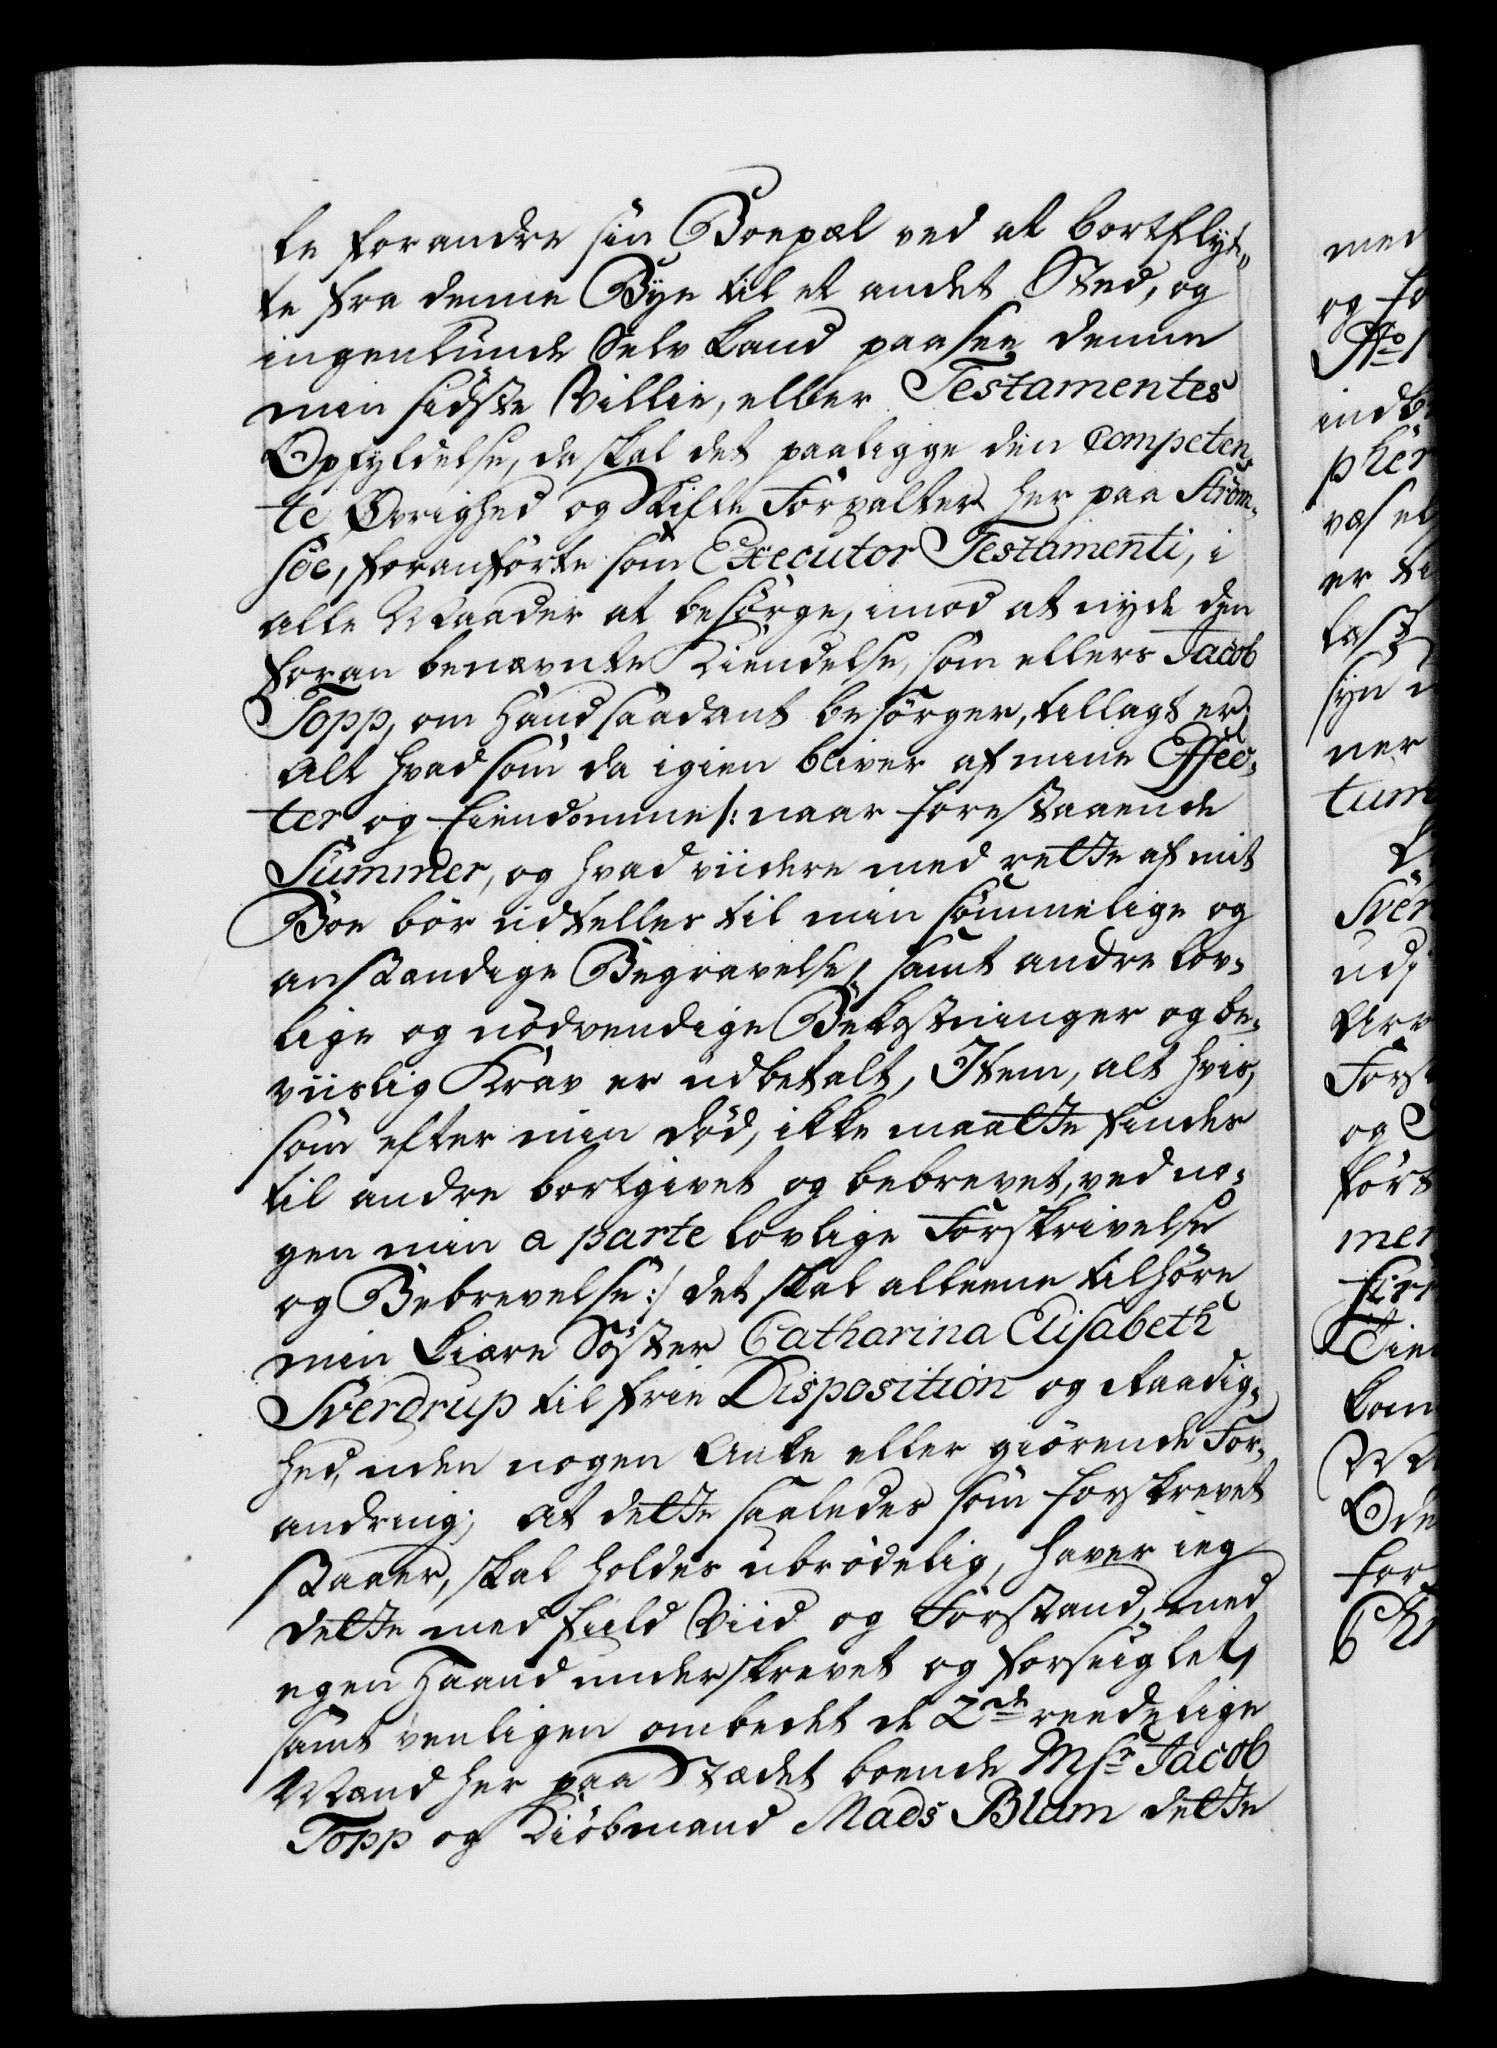 te forandre sin Boepæl ved at bortflyt-
te fra denne Bye til et andet Sted, og
ingenlunde Selv kand paasee denne
min sidste Villie, eller Testamentes
Opfyldelse, da skal det paaligge den Competen-
te Øvrighed og Skifte Forvalter her paa Ström-
söe, foranförte som Executor Testamenti, i
alle Maader at besörge, imod at nyde den
foran benævnte Kiendelse, som ellers Jacob
Topp, om hand saadant besörger, tillagt er.
Alt hvad som da igien bliver af mine Effec-
ter og Eiendomme /: naar forestaaende
Summer, og hvad viidere med rette af mit
Boe bör udtelles til min sömmelige og
anstændige Begravelse, samt andre lov-
lige og nödvendige Bekostninger og be-
viislig Krav er udbetalt, Item, alt hvis,
som efter min död, ikke maatte findes
til andre bortgivet og bebrevet, ved no-
gen min a parte lovlige Forskrivelse
og Bebrevelse :/ det skal alleene tilhöre
min kiære Söster Catharina Elisabeth
Sverdrup til frie Disposition og Raadig-
hed, uden nogen Anke eller giörende For-
andring; At dette saaledes som forskrevet
staaer, skal holdes ubrödelig, haver ieg
dette med fuld Viid og Forstand, med
egen Haand underskrevet og forseiglet,
samt venligen ombedet de 2de reedelige
Mænd her paa Stædet boende Msr Jacob
Topp og Kiöbmand Mads Blum dette
med
og fo
No 1
indb
pher
væsel
er ti
syn
ner
tum
Sver
udj
Arv
Forst
og
fört
mer
Tien
kom
Ode
for
Chr